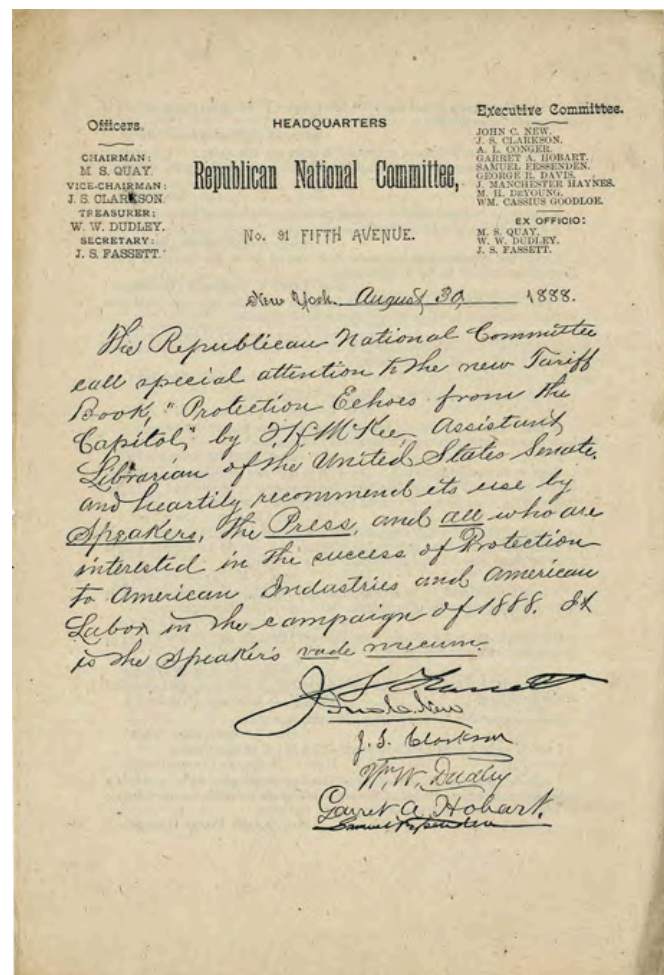 Officers.
CHAIRMAN:
M. S. QUAY.
VICE-CHAIRMAN:
J. S. CLARKSON.
TREASURER:
W. W. DUDLEY.
SECRETARY:
J. S. FASSETT.
HEADQUARTERS
Republican National Committee,
No. 91 FIFTH AVENUE.
Executive Committee.
JOHN C. NEW.
J. S. CLARKSON.
A. L. CONGER.
GARRET A. HOBART.
SAMUEL FESSENDEN.
GEORGE R. DAVIS.
J. MANCHESTER HAYNES.
M. H. DEYOUNG.
WM. CASSIUS GOODLOE.
EX OFFICIO:
M. S. QUAY.
W. W. DUDLEY.
J. S. FASSETT.
New York, August 30, 1888.
The Republican National Committee
call special attention to the new Tariff
Book, "Protection Echoes from the
Capitol," by T. H. McKee, Assistant
Librarian of the United States Senate,
and heartily recommend its use by
Speakers, the Press, and all who are
interested in the success of Protection
to American Industries and American
Labor in the campaign of 1888. It
is the Speaker's vade mecum.
J S Fassett
Jno. C. New
J. S. Clarkson
W. W. Dudley
Garret A. Hobart.
Samuel Fessenden